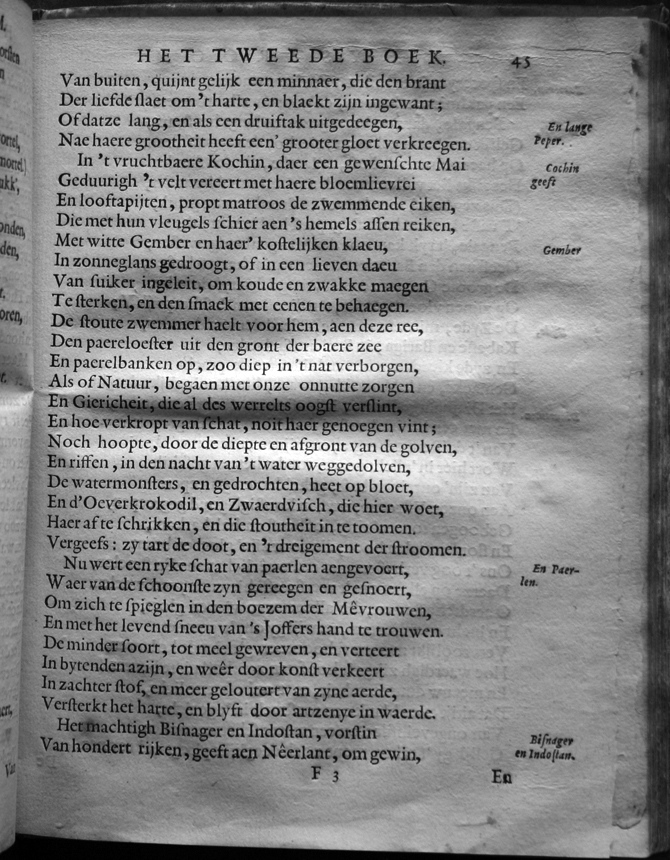 HET TWEEDE BOEK. 45
Van buiten, quijnt gelijk een minnaer, die den brant
Der liefde ſlaet om 't harte, en blaekt zijn ingewant;
Of datze lang, en als een druiftak uitgedeegen,
En lange
Nae haere grootheit heeft een' grooter gloet verkreegen.
Peper.
In 't vruchtbaere Kochin, daer een gewenſchte Mai
Cochin
Geduurigh 't velt vereert met haere bloemlievrei
geeft
En looftapijten, propt matroos de zwemmende eiken,
Die met hun vleugels ſchier aen 's hemels aſſen reiken,
Met witte Gember en haer' koſtelijken klaeu,
Gember
In zonneglans gedroogt, of in een lieven daeu
Van ſuiker ingeleit, om koude en zwakke maegen
Te ſterken, en den ſmaek met eenen te behaegen.
De ſtoute zwemmer haelt voor hem, aen deze ree,
Den paereloeſter uit den gront der baere zee
En paerelbanken op, zoo diep in 't nat verborgen,
Als of Natuur, begaen met onze onnutte zorgen
En Giericheit, die al des werrelts oogſt verſlint,
En hoe verkropt van ſchat, noit haer genoegen vint;
Noch hoopte, door de diepte en afgront van de golven,
En riffen, in den nacht van 't water weggedolven,
De watermonſters, en gedrochten, heet op bloet,
En d'Oeverkrokodil, en Zwaerdviſch, die hier woet,
Haer af te ſchrikken, en die ſtoutheit in te toomen.
Vergeefs: zy tart de doot, en 't dreigement der ſtroomen.
Nu wert een ryke ſchat van paerlen aengevoert,
En Paer-
Waer van de ſchoonſte zyn gereegen en geſnoert,
len.
Om zich te ſpieglen in den boezem der Mêvrouwen,
En met het levend ſneeu van 's Joffers hand te trouwen.
De minder ſoort, tot meel gewreven, en verteert
In bytenden azijn, en weêr door konſt verkeert
In zachter ſtof, en meer geloutert van zyne aerde,
Verſterkt het harte, en blyft door artzenye in waerde.
Het machtigh Biſnager en Indoſtan, vorſtin
Biſnager
Van hondert rijken, geeft aen Nêerlant, om gewin,
en Indoſtan.
F 3 En